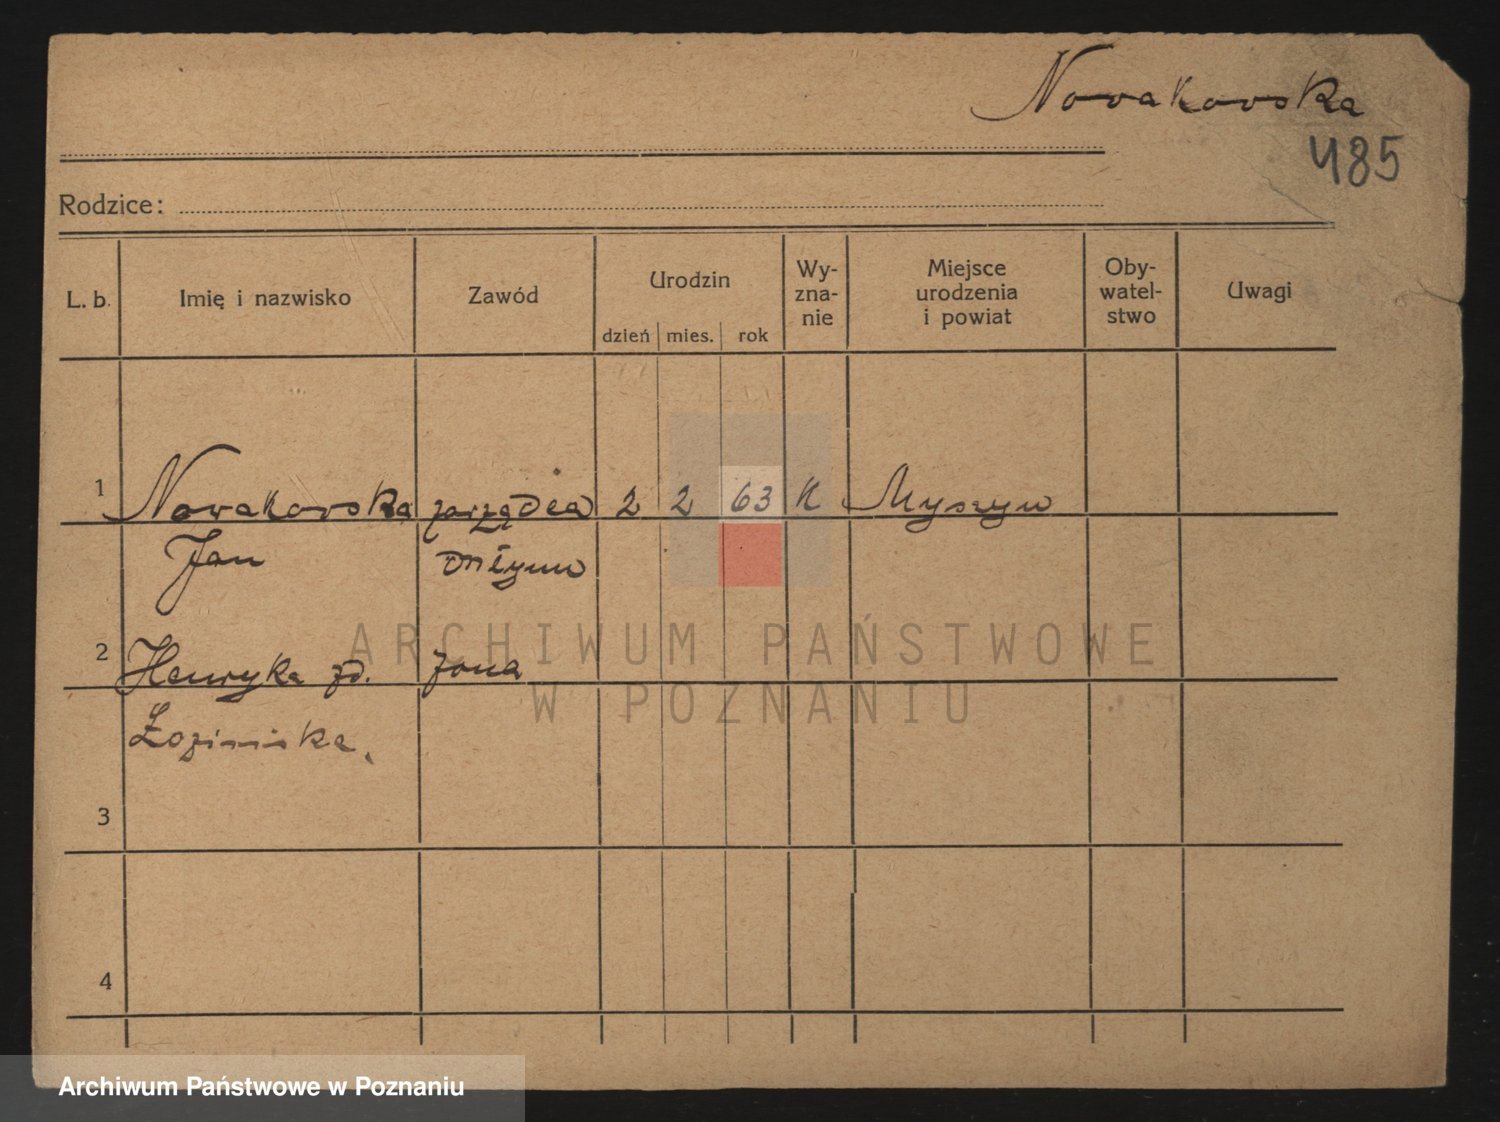 Nowakowska
485
Rodzice:
L. b. Imię i nazwisko Zawód Urodzin dzień mies. rok Wy-zna-nie Miejsce urodzenia i powiat Oby-watel-stwo Uwagi
1 Nowakowska zarządca 2 2 63 K Myszyn
Jan młynu
2 Henryka zd. żona
Łozińska
3
4
ARCHIWUM PAŃSTWOWE
W POZNANIU
Archiwum Państwowe w Poznaniu